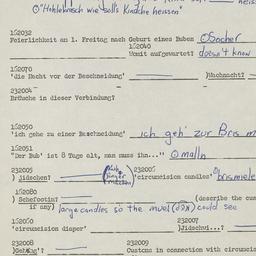 "Hohlekrasch wie soll's Kindche heissen"
162032
Feierlichkeit am 1. Freitag nach Geburt eines Buben Sochor
162040
Womit aufgewartet? doesn't know
162070
'die Nacht vor der Beschneidung' )Wachnacht?
232004
Bräuche in dieser Verbindung?
162050
'ich gehe zu einer Beschneidung' ich geh' zur Bris m
162051
"Der Bub' ist 8 Tage alt, man muss ihn..." malln
232005 232006
) Jüdschen? 'circumcision candles' brismiele
162080
) Schefostin? (describe the cus
if any) large candles so the muel could see
162060 232007
'circumcision diaper' )Jüdschvi...?
232008 232009
Customs in connection with circumcis